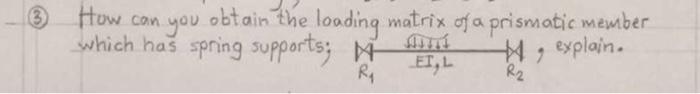 ③ How can you obtain the loading matrix of a prismatic member
which has spring supports; , explain.
EI, L
R₁ R₂